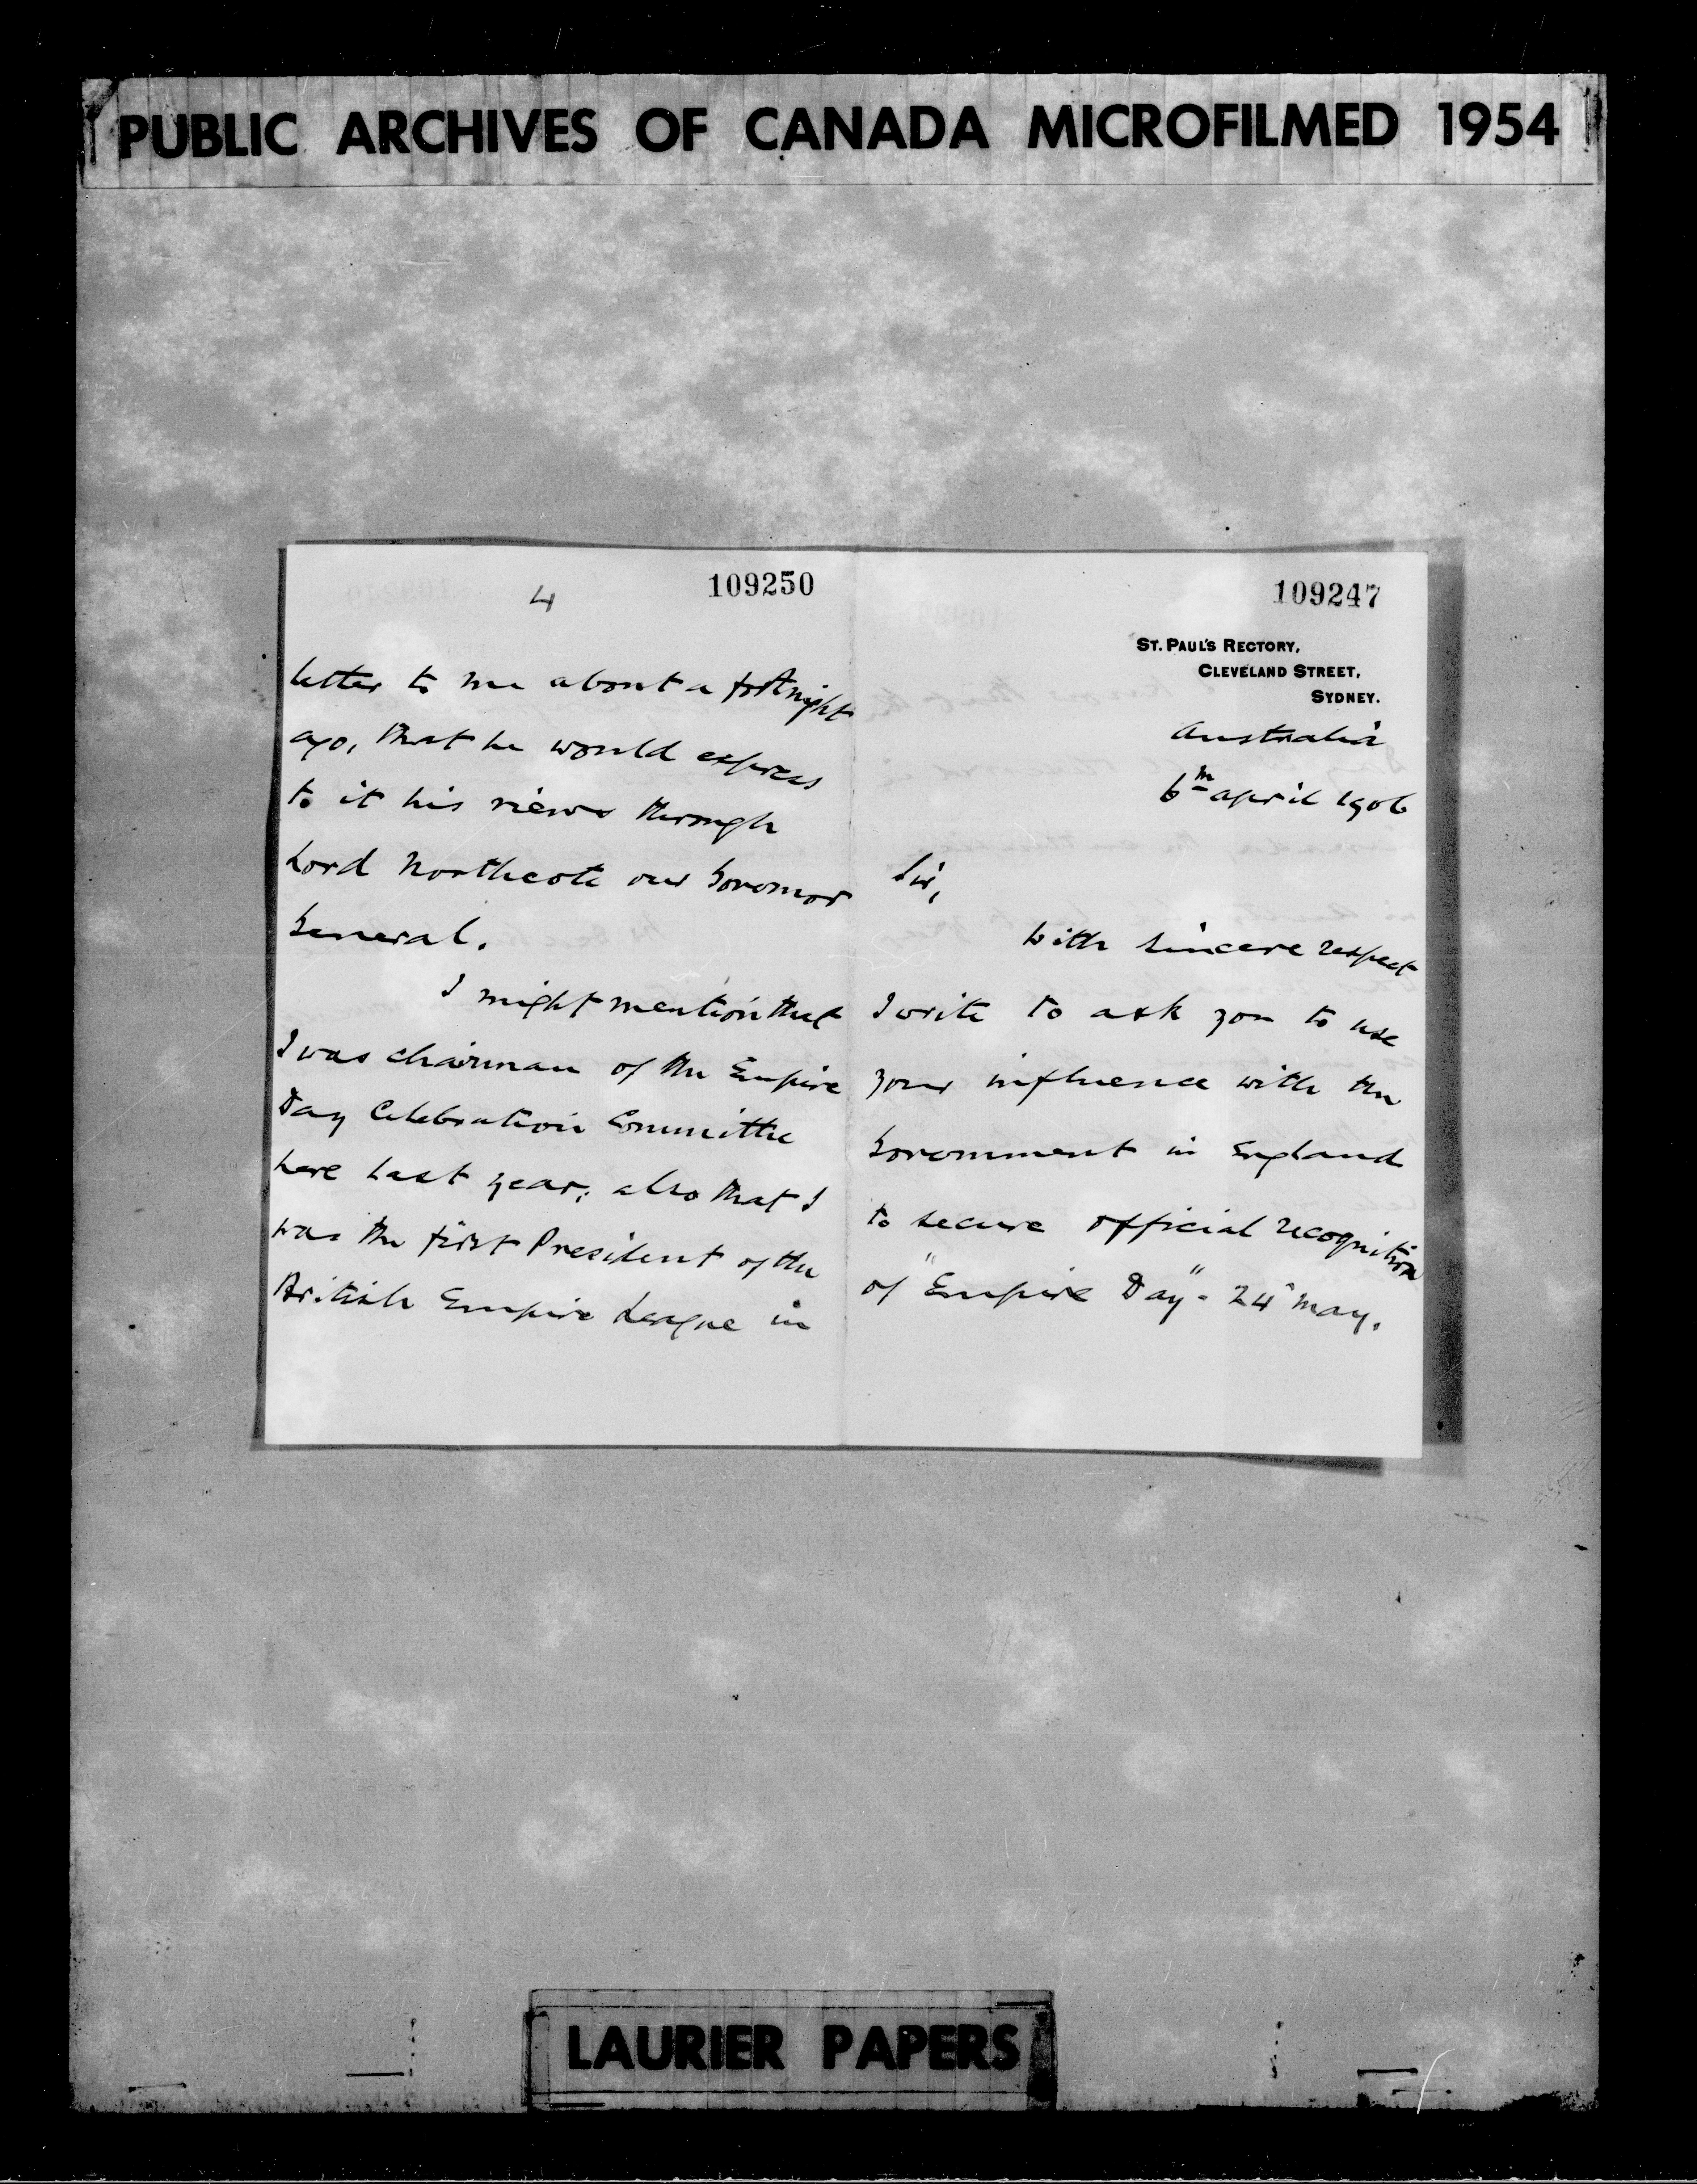 PUBLIC ARCHIVES OF CANADA MICROFILMED 1954
4
109250
letter to me about a fortnight
ago, that he would express
to it his views through
Lord Northcote our Governor
General.
I might mention that
I was chairman of the Empire
Day Celebration Committee
here last year; also that I
was the first President of the
British Empire League in
109247
ST. PAUL'S RECTORY,
CLEVELAND STREET,
SYDNEY.
Australia
6th April 1906
Sir,
With sincere respect
I write to ask you to use
your influence with the
Government in England
to secure official recognition
of "Empire Day" - 24" May.
LAURIER PAPERS